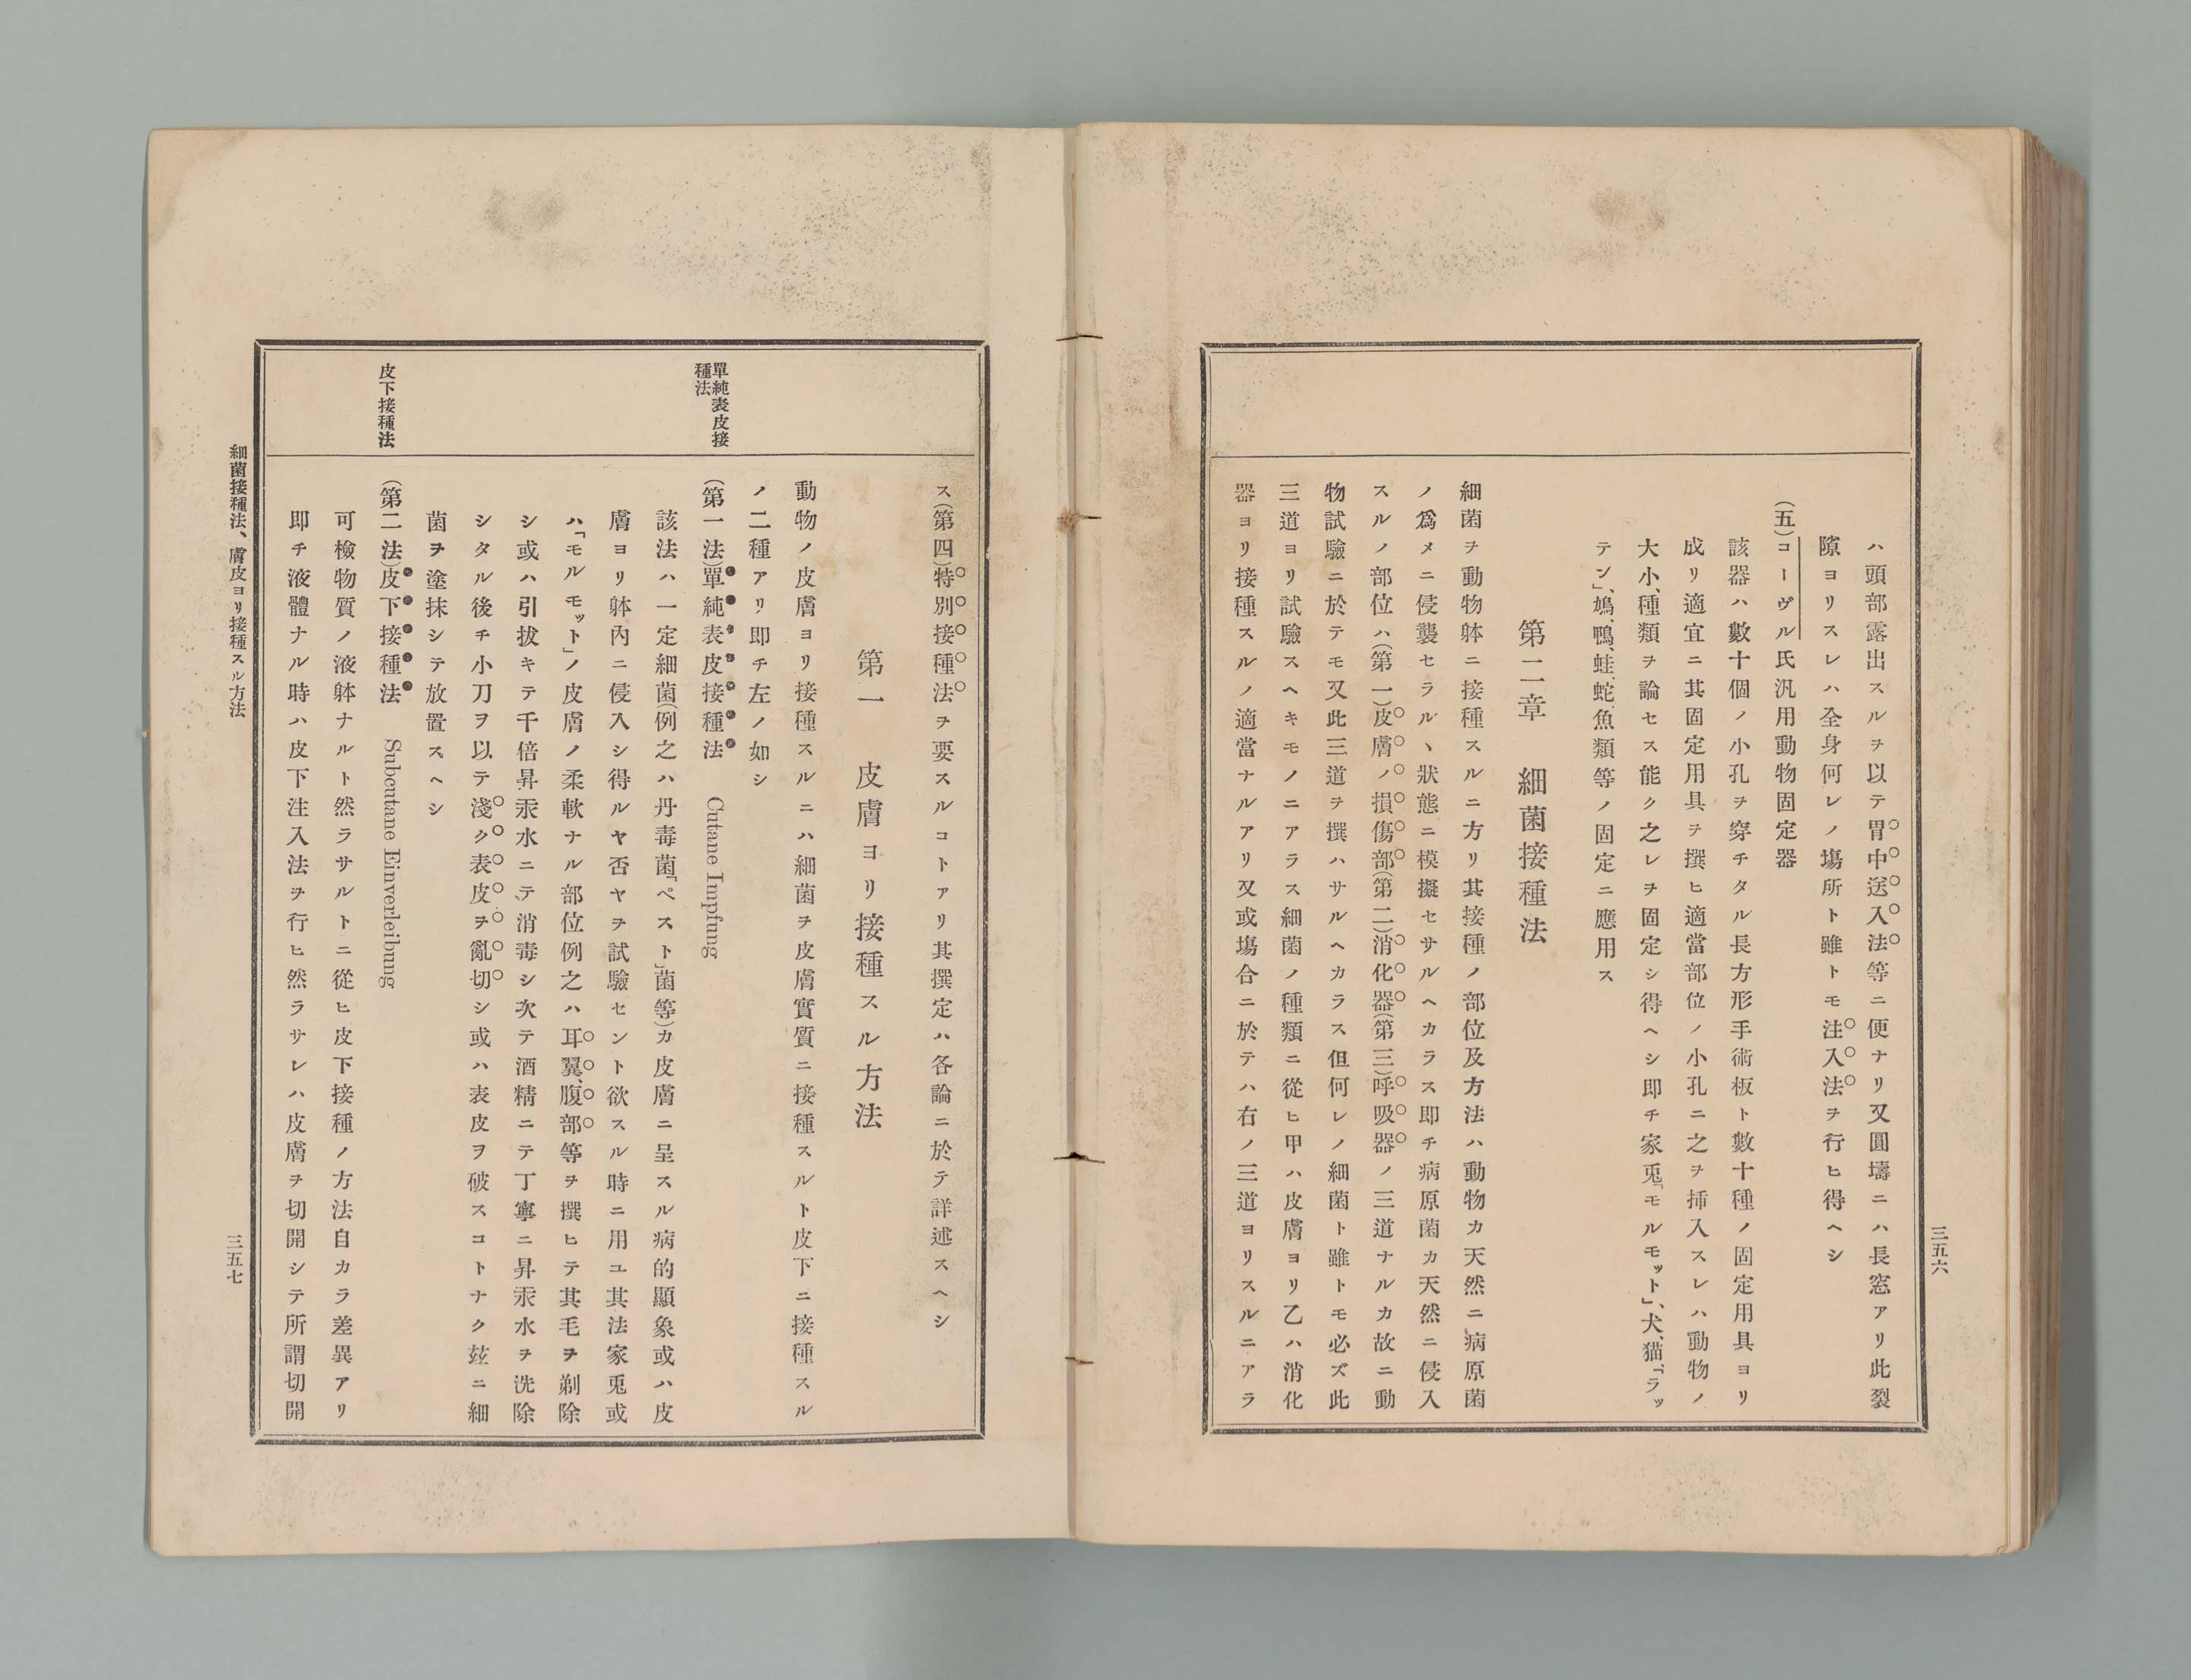 三五六
ハ頭部露出スルヲ以テ胃中送入法等ニ便ナリ又圓壔ニハ長窓アリ此裂
隙ヨリスレハ全身何レノ塲所ト雖トモ注入法ヲ行ヒ得ヘシ
(五)コーヴル氏汎用動物固定器
該器ハ數十個ノ小孔ヲ穿チタル長方形手術板ト數十種ノ固定用具ヨリ
成リ適宜ニ其固定用具ヲ撰ヒ適當部位ノ小孔ニ之ヲ揷入スレハ動物ノ
大小、種類ヲ論セス能ク之レヲ固定シ得ヘシ即チ家兎「モルモット」、犬、猫、「ラッ
テン」、鳩、鴨、蛙、蛇、魚類等ノ固定ニ應用ス
第二章 細菌接種法
細菌ヲ動物躰ニ接種スルニ方リ其接種ノ部位及方法ハ動物カ天然ニ病原菌
ノ爲メニ侵襲セラルヽ狀態ニ模擬セサルヘカラス即チ病原菌カ天然ニ侵入
スルノ部位ハ(第一)皮膚ノ損傷部(第二)消化器(第三)呼吸器ノ三道ナルカ故ニ動
物試驗ニ於テモ又此三道ヲ撰ハサルヘカラス但何レノ細菌ト雖トモ必ズ此
三道ヨリ試驗スヘキモノニアラス細菌ノ種類ニ從ヒ甲ハ皮膚ヨリ乙ハ消化
器ヨリ接種スルノ適當ナルアリ又或塲合ニ於テハ右ノ三道ヨリスルニアラ
ス(第四)特別接種法ヲ要スルコトアリ其撰定ハ各論ニ於テ詳述スヘシ
第一 皮膚ヨリ接種スル方法
動物ノ皮膚ヨリ接種スルニハ細菌ヲ皮膚實質ニ接種スルト皮下ニ接種スル
ノ二種アリ即チ左ノ如シ
單純表皮接
種法
(第一法)單純表皮接種法 Cutane Impfung
該法ハ一定細菌(例之ハ丹毒菌「ペスト」菌等)カ皮膚ニ呈スル病的顯象或ハ皮
膚ヨリ躰內ニ侵入シ得ルヤ否ヤヲ試驗セント欲スル時ニ用ユ其法家兎或
ハ「モルモット」ノ皮膚ノ柔軟ナル部位例之ハ耳翼、腹部等ヲ撰ヒテ其毛ヲ剃除
シ或ハ引拔キテ千倍昇汞水ニテ、消毒シ次テ酒精ニテ丁寧ニ昇汞水ヲ洗除
シタル後チ小刀ヲ以テ淺ク表皮ヲ亂切シ或ハ表皮ヲ破スコトナク玆ニ細
菌ヲ塗抹シテ放置スヘシ
皮下接種法
(第二法)皮下接種法 Subcutane Einverleibung
可檢物質ノ液躰ナルト然ラサルトニ從ヒ皮下接種ノ方法自カラ差異アリ
即チ液體ナル時ハ皮下注入法ヲ行ヒ然ラサレハ皮膚ヲ切開シテ所謂切開
細菌接種法、膚皮ヨリ接種スル方法
三五七